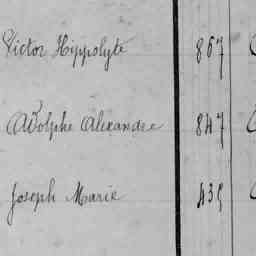 Victor Hippolyte 867
Adolphe Alexandre 847
Joseph Marie 435